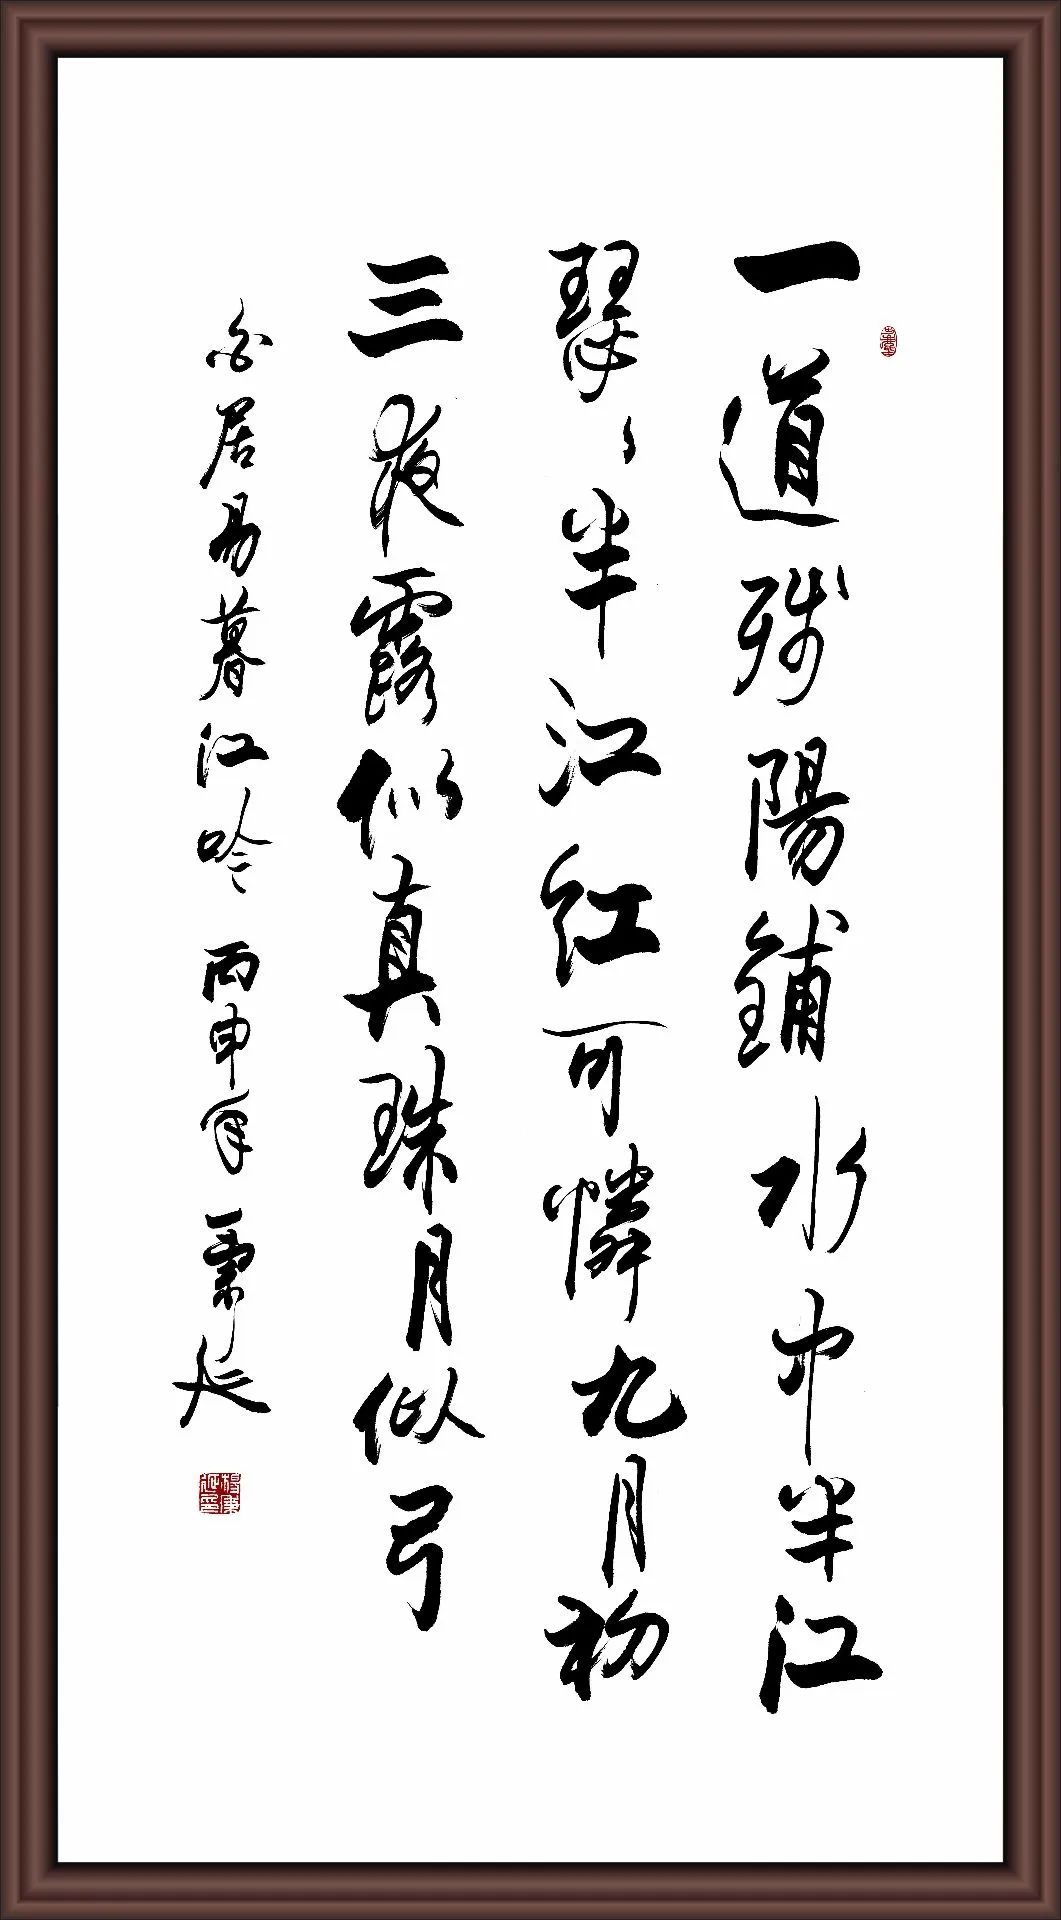 一道残陽鋪水中半江
瑟々半江紅可憐九月初
三夜露似真珠月似弓
白居易暮江吟 丙申年